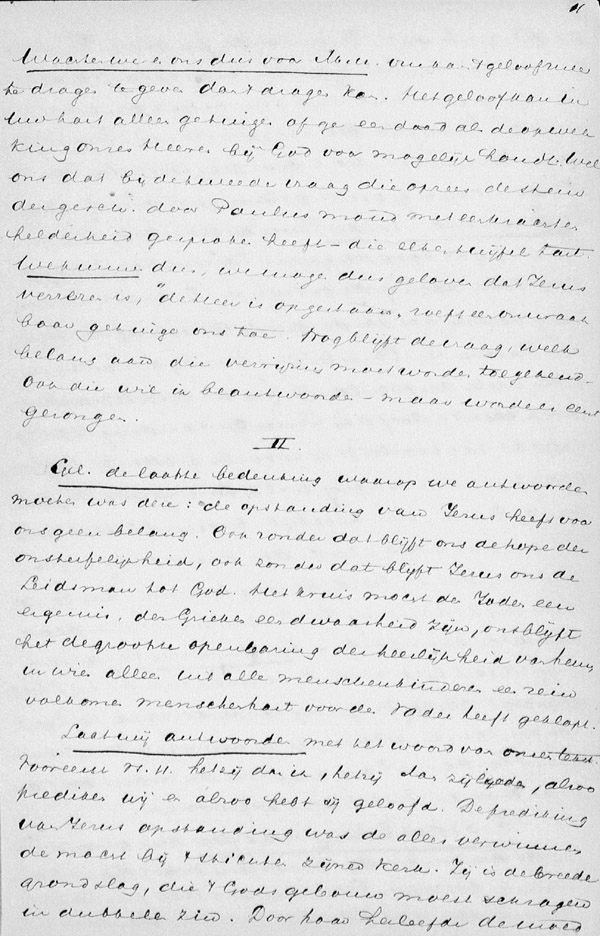 Wachten we ons dus voor Thom. om aan 't geloof meer
te dragen te geven dan 't dragen kan. Het geloof kan in
uw hart alleen getuigen of ge een daad als de opwek
king onzes Heeren bij God voor mogelijk houdt. Wel
ons dat bij de tweede vraag die oprees de stem
der gesch. door Paulus mond met
helderheid gesproken heeft – die elke twijfel tart.
We kunnen dus, we mogen dus gelooven dat Jezus
verrezen is, "de Heer is opgestaan, roept een onwraak
baar getuige ons toe. Nog blijft de vraag, welk
belang aan die verrijzenis moet worden toegekend –
Ook die wil ik beantwoorden – maar worde er eerst
gezongen.
II.
Gel. de laatste bedenking waarop we antwoorden
moeten was deze: de opstanding van Jezus heeft voor
ons geen belang. Ook zonder dat blijft ons de hope der
onsterfelijkheid, ook zonder dat blijft Jezus ons de
Leidsman tot God. Het kruis moest den Joden een
ergernis, den Grieken een dwaasheid zijn, ons blijft
het de grootste openbaring der heerlijkheid van hem,
in wien alleen uit alle menschenkinderen een rein
volkomen menschenhart voor den Vader heeft geklopt.
Laat mij antwoorden met het woord van onzen tekst.
Vooreerst vs. 11. hetzij dan ik, hetzij dan zijlieden, alzoo
prediken wij en alzoo hebt gij geloofd. De prediking
van Jezus opstanding was de alles verwinnen
de macht bij 't stichten zijner kerk. Zij is de breede
grondslag, die 't Gods gebouw moest schragen
in dubbelen zin. Door haar de moed